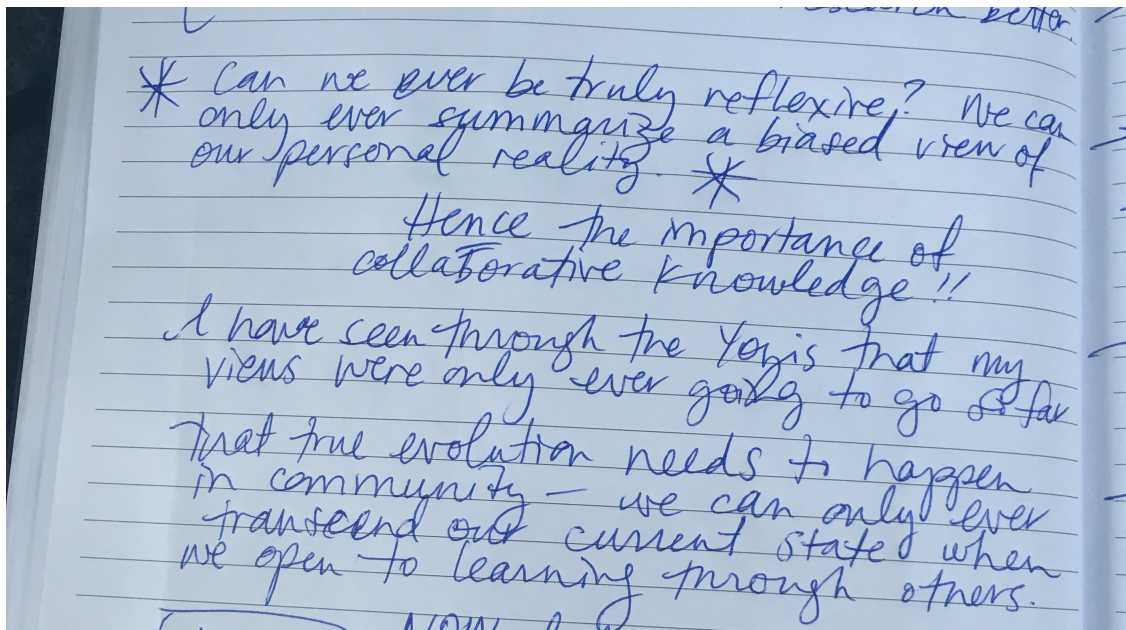 research better.
* Can we ever be truly reflexive? We can
only ever summarize a biased view of
our personal reality. *
Hence the importance of
collaborative knowledge!!
I have seen through the Yogis that my
views were only ever going to go so far
that true evolution needs to happen
in community – we can only ever
transcend our current state when
we open to learning through others.
NOW